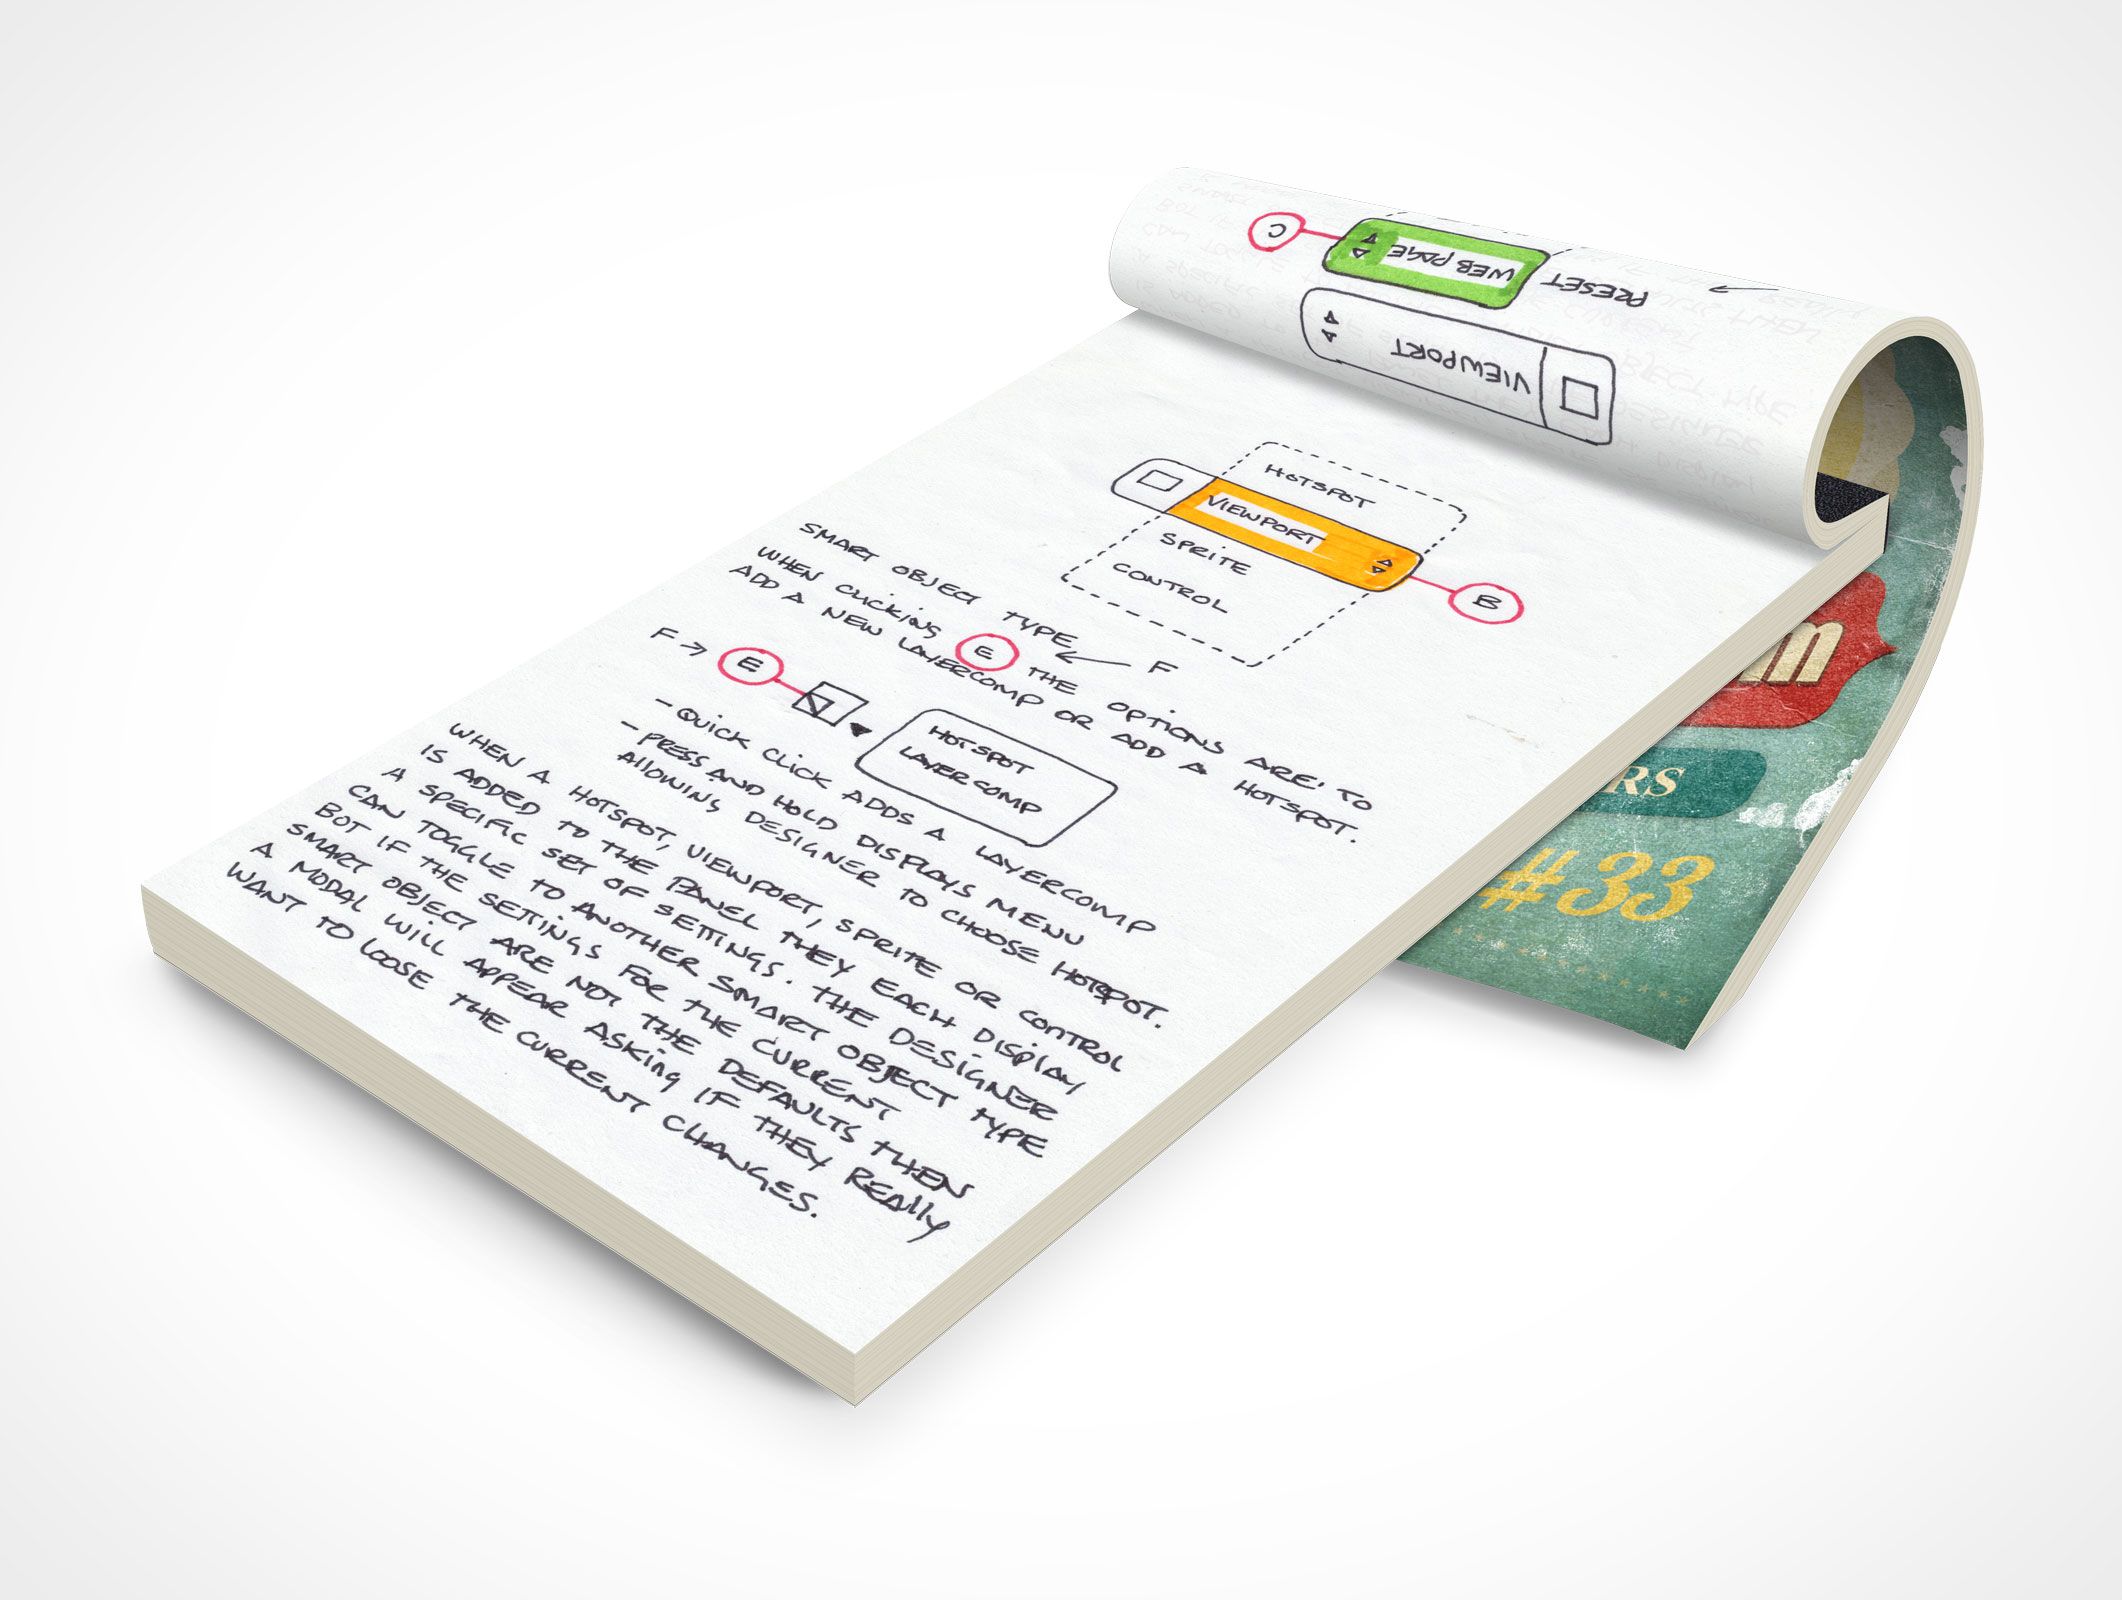 C
WEB PAGE
PRESET
VIEWPORT
HOTSPOT
VIEWPORT
SPRITE
CONTROL
B
SMART OBJECT TYPE
F
WHEN CLICKING E THE OPTIONS ARE: TO
ADD A NEW LAYERCOMP OR ADD A HOTSPOT.
F → E
HOTSPOT
LAYERCOMP
- QUICK CLICK ADDS A LAYERCOMP
- PRESS AND HOLD DISPLAYS MENU
ALLOWING DESIGNER TO CHOOSE HOTSPOT.
WHEN A HOTSPOT, VIEWPORT, SPRITE OR CONTROL
IS ADDED TO THE PANEL THEY EACH DISPLAY
A SPECIFIC SET OF SETTINGS. THE DESIGNER
CAN TOGGLE TO ANOTHER SMART OBJECT TYPE
BOT IF THE SETTINGS FOR THE CURRENT
SMART OBJECT ARE NOT THE DEFAULTS THEN
A MODAL WILL APPEAR ASKING IF THEY REALLY
WANT TO LOOSE THE CURRENT CHANGES.
m
RS
#33